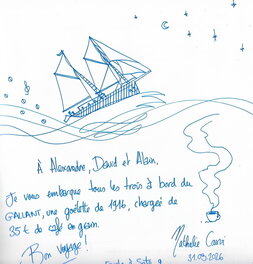 À Alexandre, David et Alain,
Je vous embarque tous les trois à bord du
GALLANT, une goélette de 1916, chargée de
35 t de café en grain.
Bon voyage!
Nathalie
31.05.2026